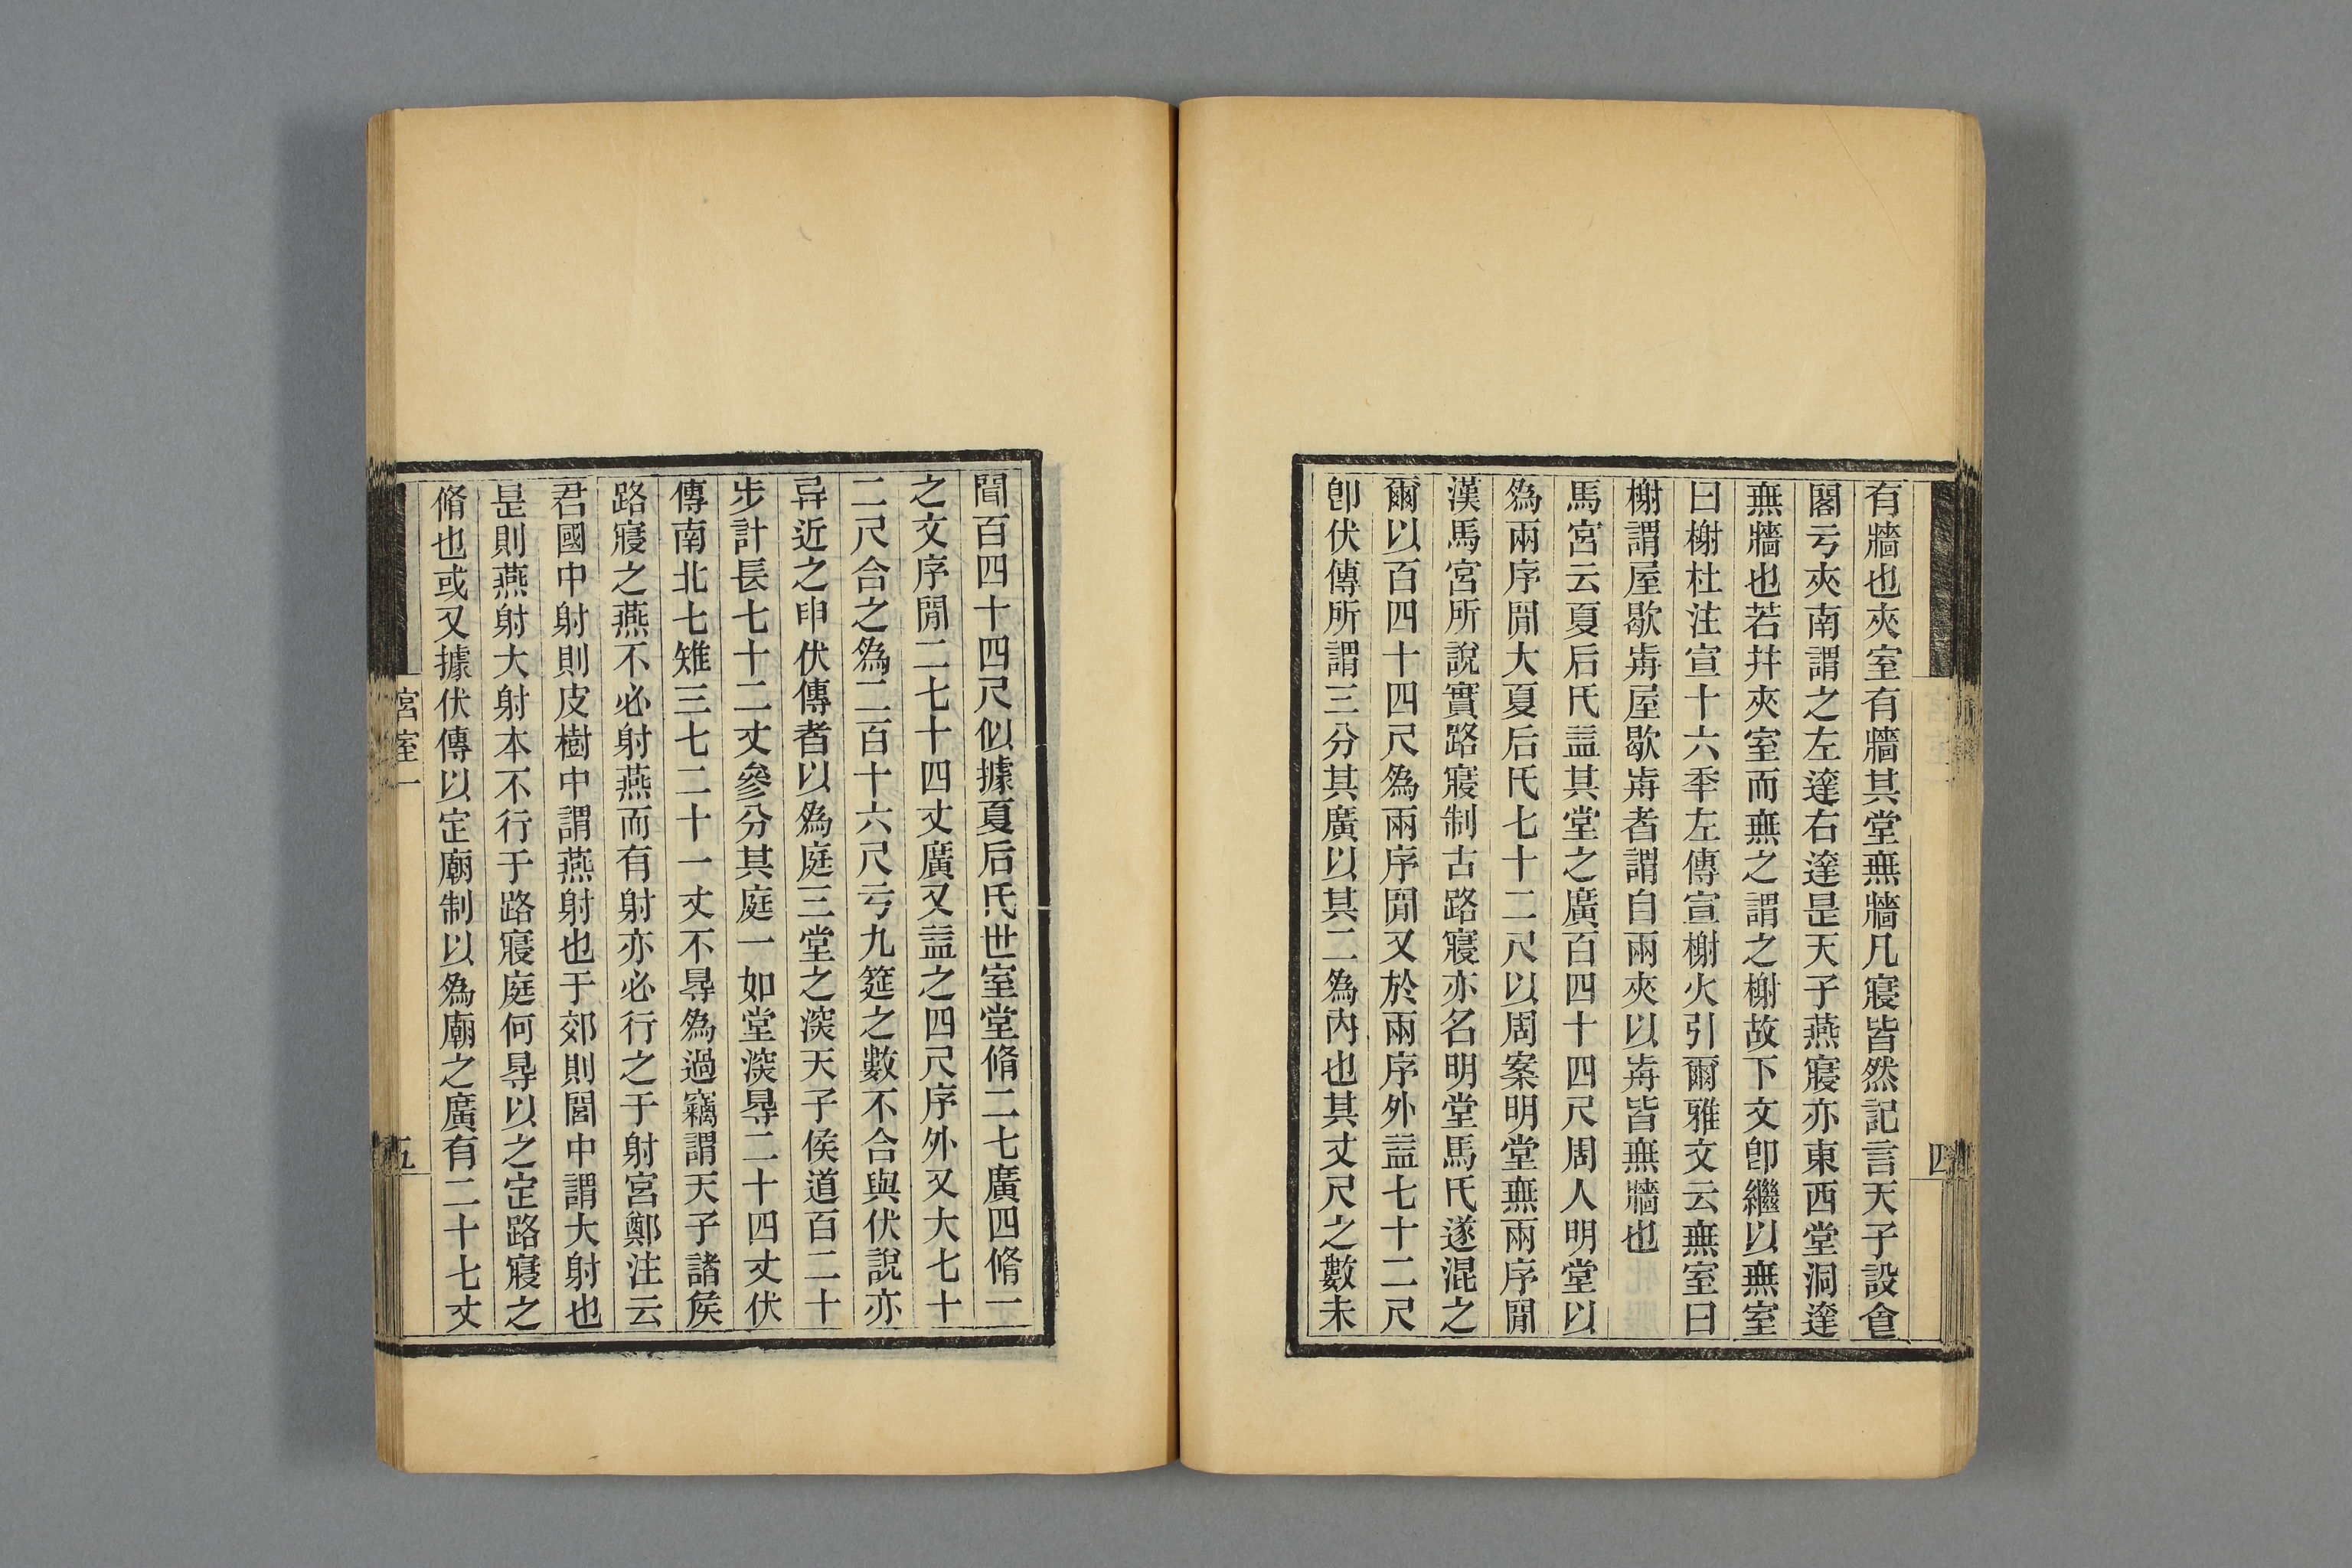 有牆也夾室有牆其堂無牆凡寢皆然記言天子設食
閣亏夾南謂之左達右達是天子燕寢亦東西堂洞達
無牆也若幷夾室而無之謂之榭故下文卽繼以無室
曰榭杜注宣十六秊左傳宣榭火引爾雅文云無室曰
榭謂屋歇歬屋歇歬者謂自兩夾以歬皆無牆也
馬宮云夏后氏盖其堂之廣百四十四尺周人明堂以
爲兩序閒大夏后氏七十二尺以周案明堂無兩序閒
漢馬宮所說實路寢制古路寢亦名明堂馬氏遂混之
爾以百四十四尺爲兩序閒又於兩序外盖七十二尺
卽伏傳所謂三分其廣以其二爲內也其丈尺之數未
聞百四十四尺似據夏后氏世室堂脩二七廣四脩一
之文序閒二七十四丈廣又盖之四尺序外又大七十
二尺合之爲二百十六尺亏九筵之數不合與伏說亦
异近之申伏傳者以爲庭三堂之㴱天子侯道百二十
步計長七十二丈參分其庭一如堂㴱㝵二十四丈伏
傳南北七雉三七二十一丈不㝵爲過竊謂天子諸矦
路寢之燕不必射燕而有射亦必行之于射宮鄭注云
君國中射則皮樹中謂燕射也于郊則閭中謂大射也
是則燕射大射本不行于路寢庭何㝵以之定路寢之
脩也或又據伏傳以定廟制以爲廟之廣有二十七丈
宮室一
五
四